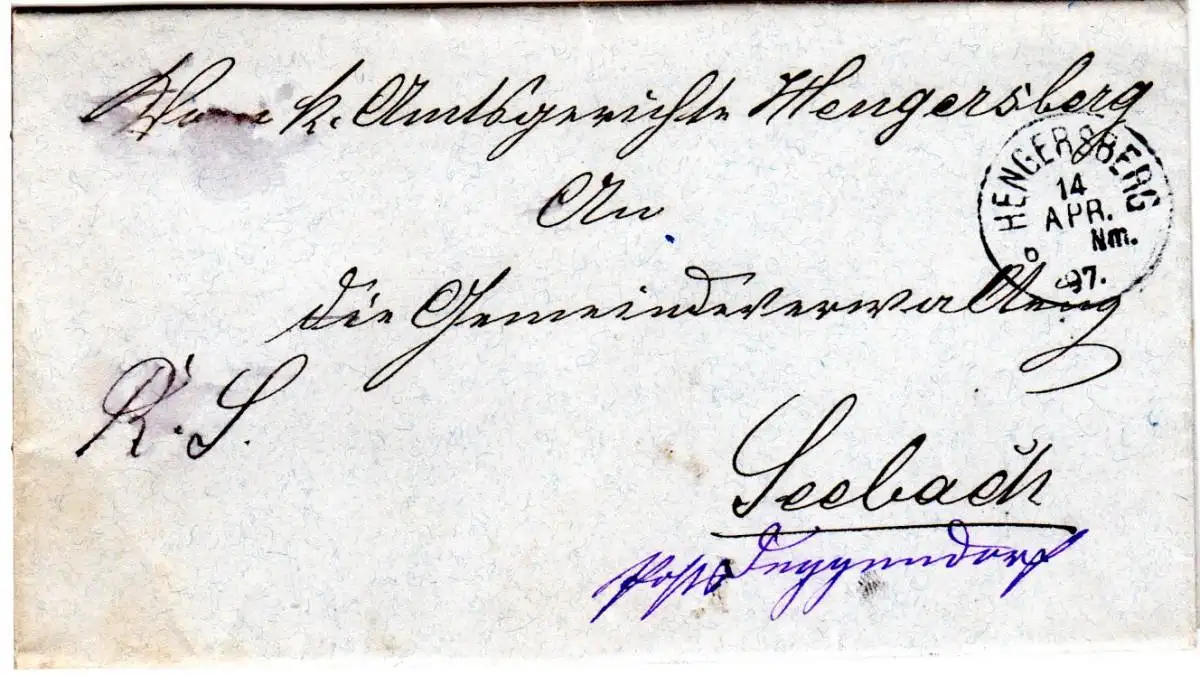 Vom k. Amtsgerichte Hengersberg
An
die Gemeindeverwaltung
R. S.
Seebach
Post Deggendorf
HENGERSBERG
14
APR.
Nm.
97.